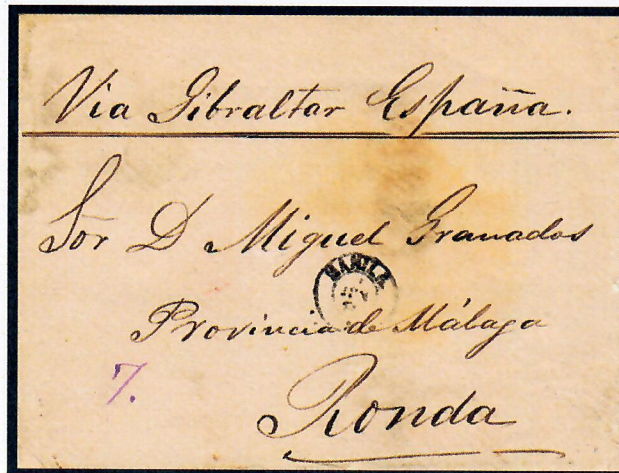 Via Gibraltar España.
Sor D Miguel Granados
MANILA
Provincia de Málaga
7.
Ronda